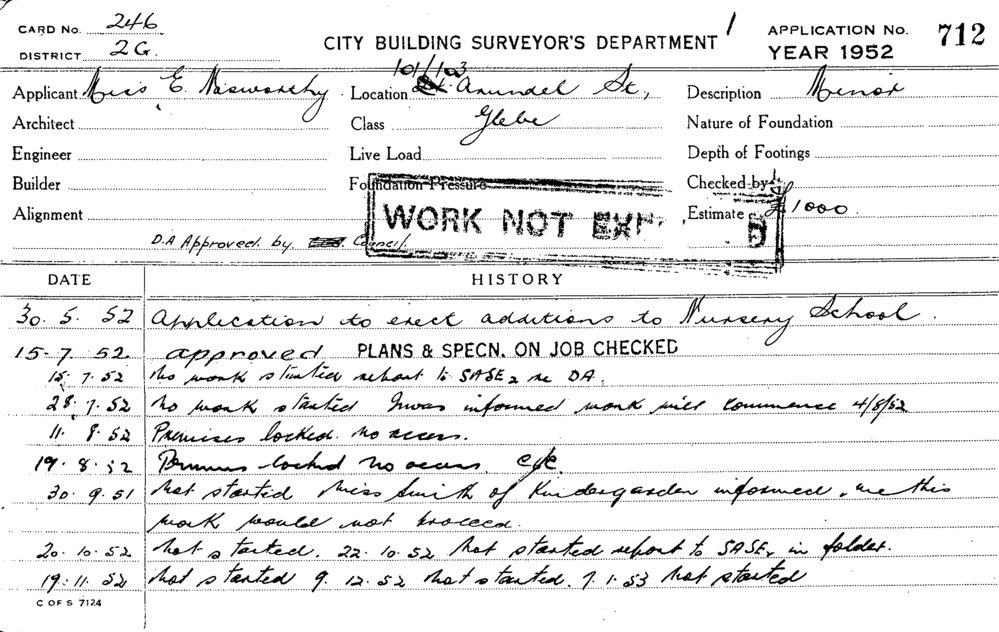 CARD No. 246
DISTRICT 2G.
CITY BUILDING SURVEYOR'S DEPARTMENT
APPLICATION No. 712
YEAR 1952
Applicant Miss E. Nosworthy
Location 101/103 Arundel St,
Description Minor
Architect
Class Glebe
Nature of Foundation
Engineer
Live Load
Depth of Footings
Builder
Foundation Pressure
Checked by
Alignment
WORK NOT
Estimate £1000
D.A Approved by Council.
DATE HISTORY
30. 5. 52 Application to erect additions to Nursery School.
15-7. 52. approved PLANS & SPECN. ON JOB CHECKED
15. 7. 52 No work started report to SASE2 re DA.
28. 7. 52 No work started I was informed work will commence 4/8/52
11. 8. 52 Premises locked. no access.
19. 8. 52 Premises locked no access
30. 9. 51 Not started Miss Smith of Kindergarden informed me this
work would not proceed.
20. 10. 52 Not started. 22. 10. 52 Not started report to SASE in folder.
19. 11. 52 Not started 9. 12. 52 Not started. 7. 1. 53 Not started
C OF S 7124